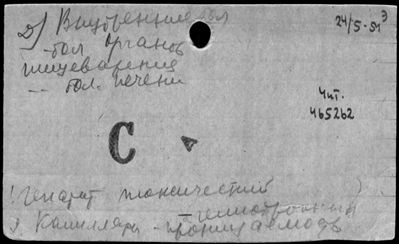 2) Внутренние бол
24/5-51
- бол. органов
пищеварения
-- бол. печени
Чит.
465262
С
гепатит токсический
Капилляры - проницаемость